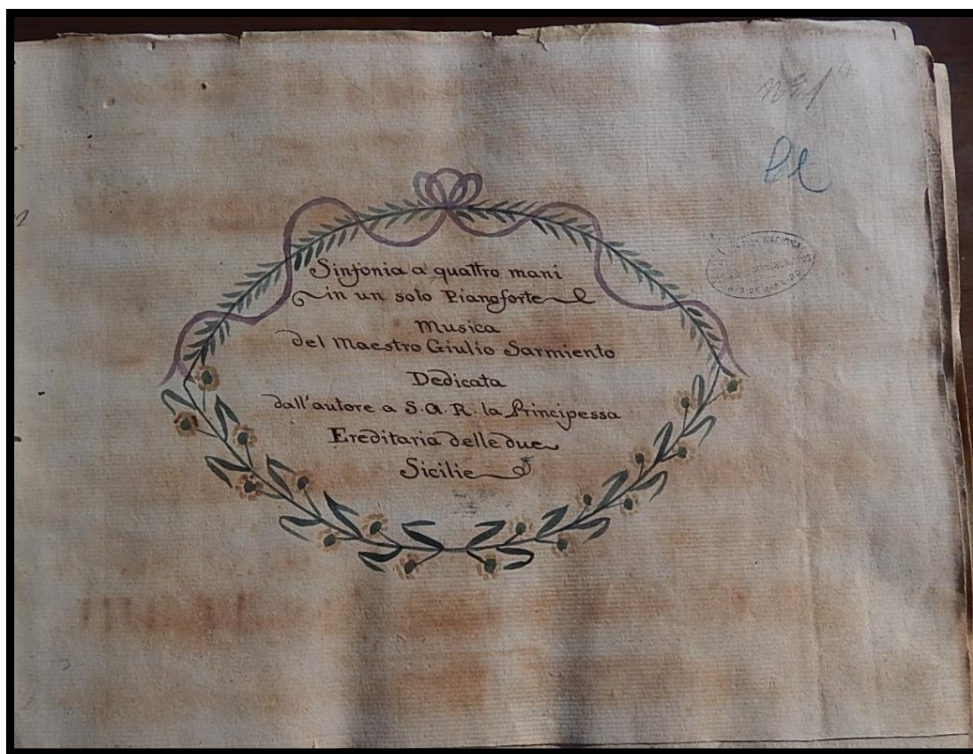 Sinfonia a quattro mani
in un solo Pianoforte
Musica
del Maestro Giulio Sarmiento
Dedicata
dall'autore a S.A.R. la Principessa
Ereditaria delle due
Sicilie